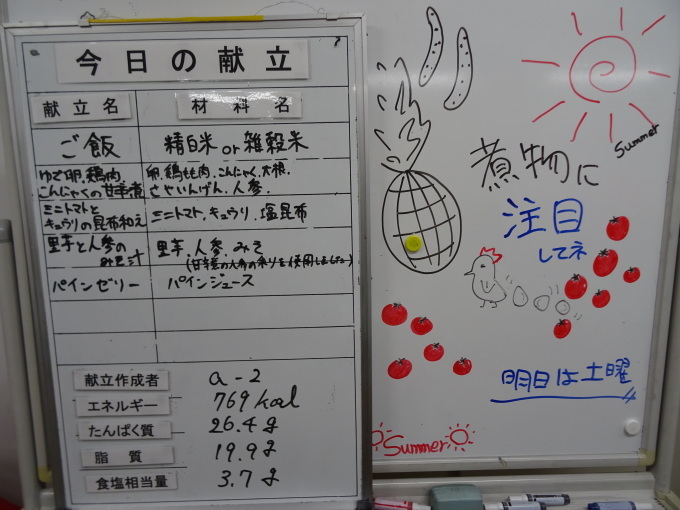 今日の献立
献立名 材料名
ご飯 精白米 or 雑穀米
ゆで卵、鶏肉、 卵、鶏もも肉、こんにゃく、大根、
こんにゃくの甘辛煮 さやいんげん、人参、
ミニトマトと
キュウリの昆布和え ミニトマト、キュウリ、塩昆布
里芋と人参の 里芋、人参、みそ
みそ汁 (甘辛煮の人参の余りを使用しました)
パインゼリー パインジュース
献立作成者 a-2
エネルギー 769kcal
たんぱく質 26.4g
脂質 19.9g
食塩相当量 3.7g
Summer
煮物に
注目
してネ
明日は土曜
Summer